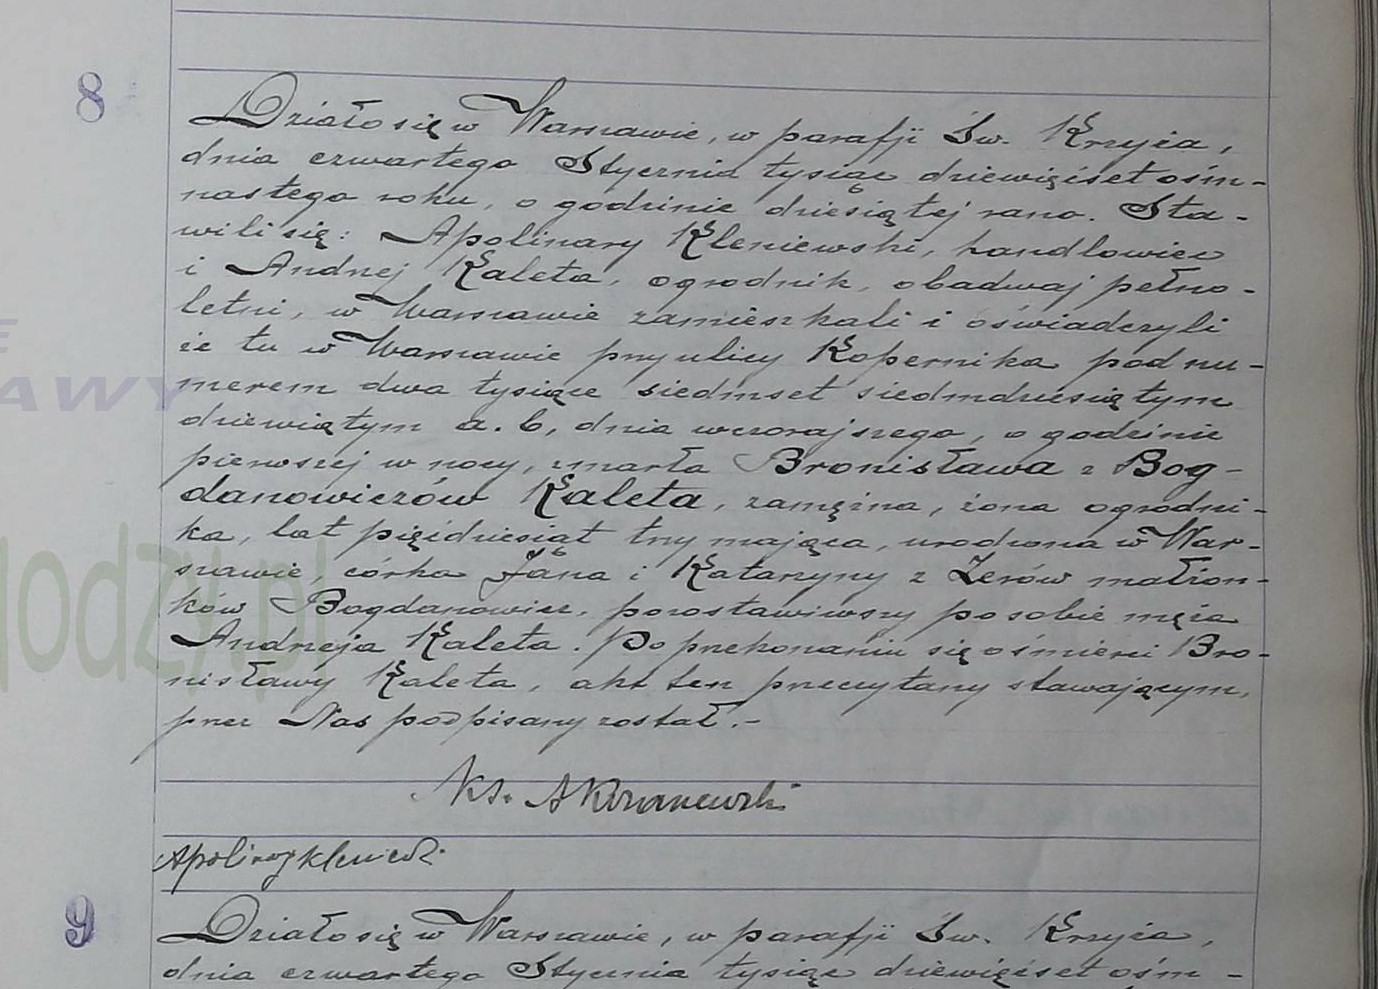 8
Działo się w Warszawie, w parafji Św. Krzyża,
dnia czwartego Stycznia tysiąc dziewięćset ośm-
nastego roku, o godzinie dziesiątej rano. Sta-
wili się: Apolinary Kleniewski, handlowiec
i Andrzej Kaleta, ogrodnik, obadwaj pełno-
letni, w Warszawie zamieszkali i oświadczyli
że tu w Warszawie przy ulicy Kopernika pod nu-
merem dwa tysiące siedmset siedmdziesiątym
dziewiątym a. b, dnia wczorajszego, o godzinie
pierwszej w nocy, zmarła Bronisława z Bog-
danowiczów Kaleta, zamężna, żona ogrodni-
ka, lat pięćdziesiąt trzy mająca, urodzona w War-
szawie, córka Jana i Katarzyny z Zerów małżon-
ków Bogdanowicz, pozostawiwszy po sobie męża
Andrzeja Kaleta. Po przekonaniu się o śmierci Bro-
nisławy Kaleta, akt ten przeczytany stawającym,
przez Nas podpisany został.-
Ks. A
Apolinary Kleniewski
9
Działo się w Warszawie, w parafji Św. Krzyża,
dnia czwartego Stycznia tysiąc dziewięćset ośm-
E
AWY
odzy.pl